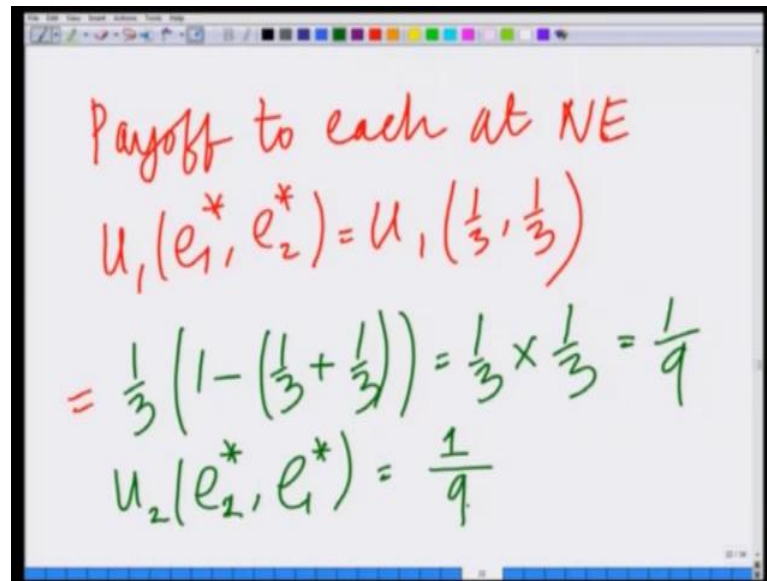 File Edit View Insert Actions Tools Help
Payoff to each at NE
U₁(e₁*, e₂*) = U₁(1/3, 1/3)
= 1/3 (1 - (1/3 + 1/3)) = 1/3 × 1/3 = 1/9
U₂(e₂*, e₁*) = 1/9